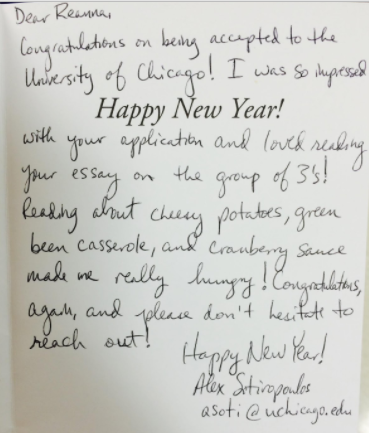 Dear Reanna,
Congratulations on being accepted to the
University of Chicago! I was so impressed
Happy New Year!
with your application and loved reading
your essay on the group of 3's!
Reading about cheesy potatoes, green
been casserole, and cranberry sauce
made me really hungry! Congratulations,
again, and please don't hesitate to
reach out!
Happy New Year!
Alex Sotiropoulos
asoti@uchicago.edu